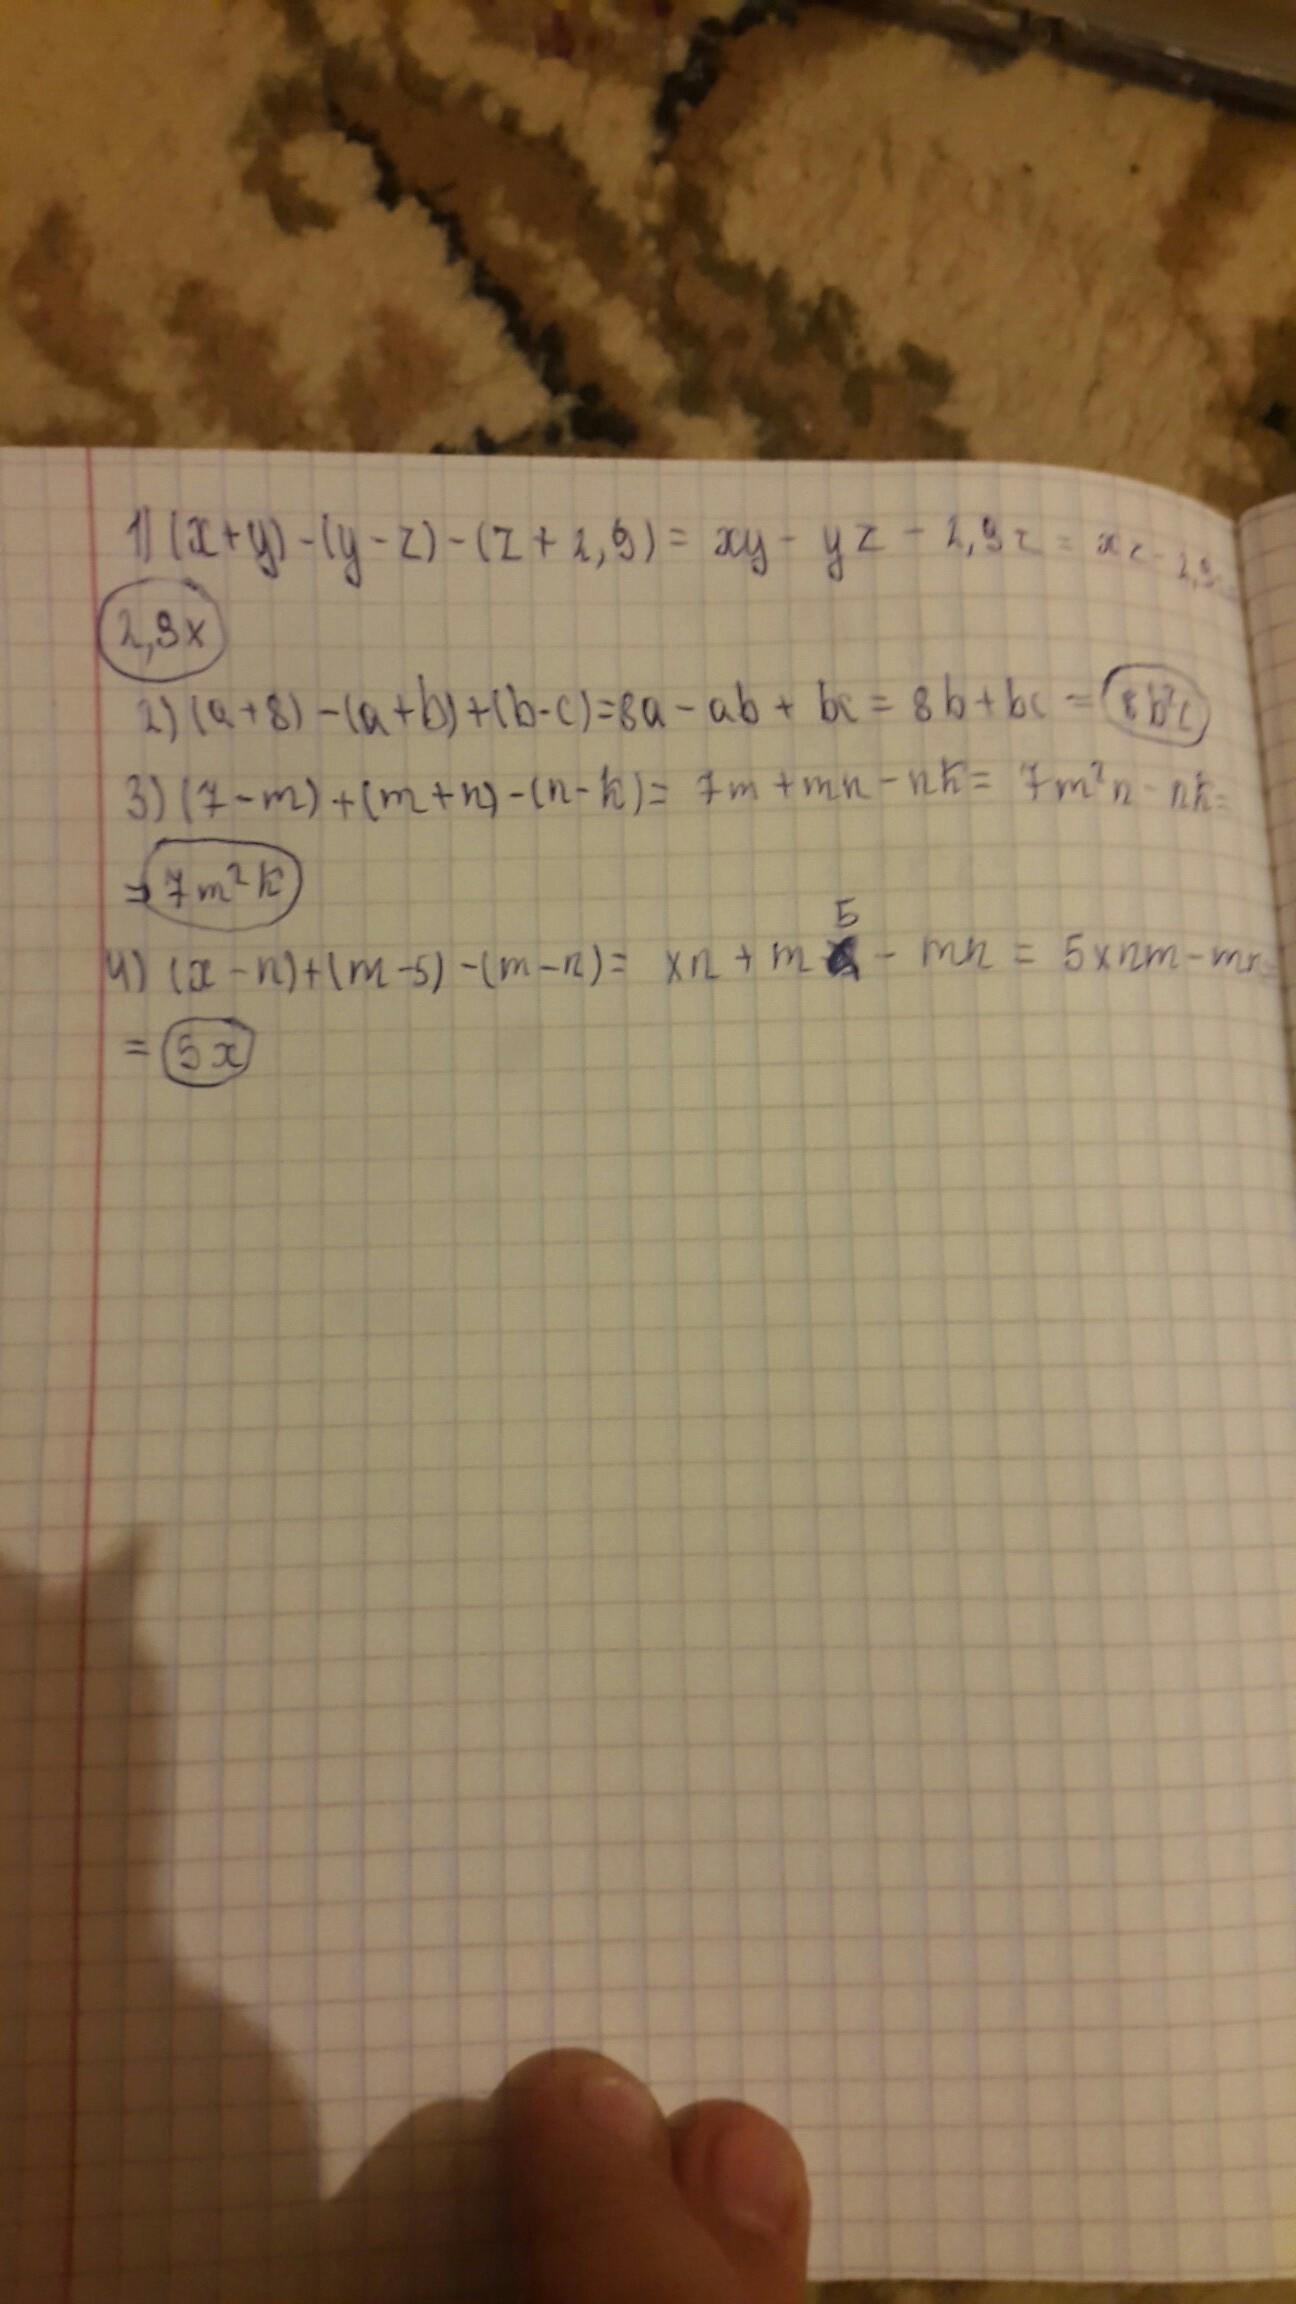 1) (x+y)-(y-z)-(z+2,9)= xy- yz - 2,9z = xz-2,9
2,9x
2) (a+8)-(a+b)+(b-c)=8a-ab+ bc = 8b+bc = 8b²c
3) (7-m)+(m+n)-(n-k)= 7m+mn-nk= 7m²n-nk=
= 7m²k
4) (x-n)+(m-5)-(m-n)= xn+m5 - mn = 5xnm-mn=
= 5x